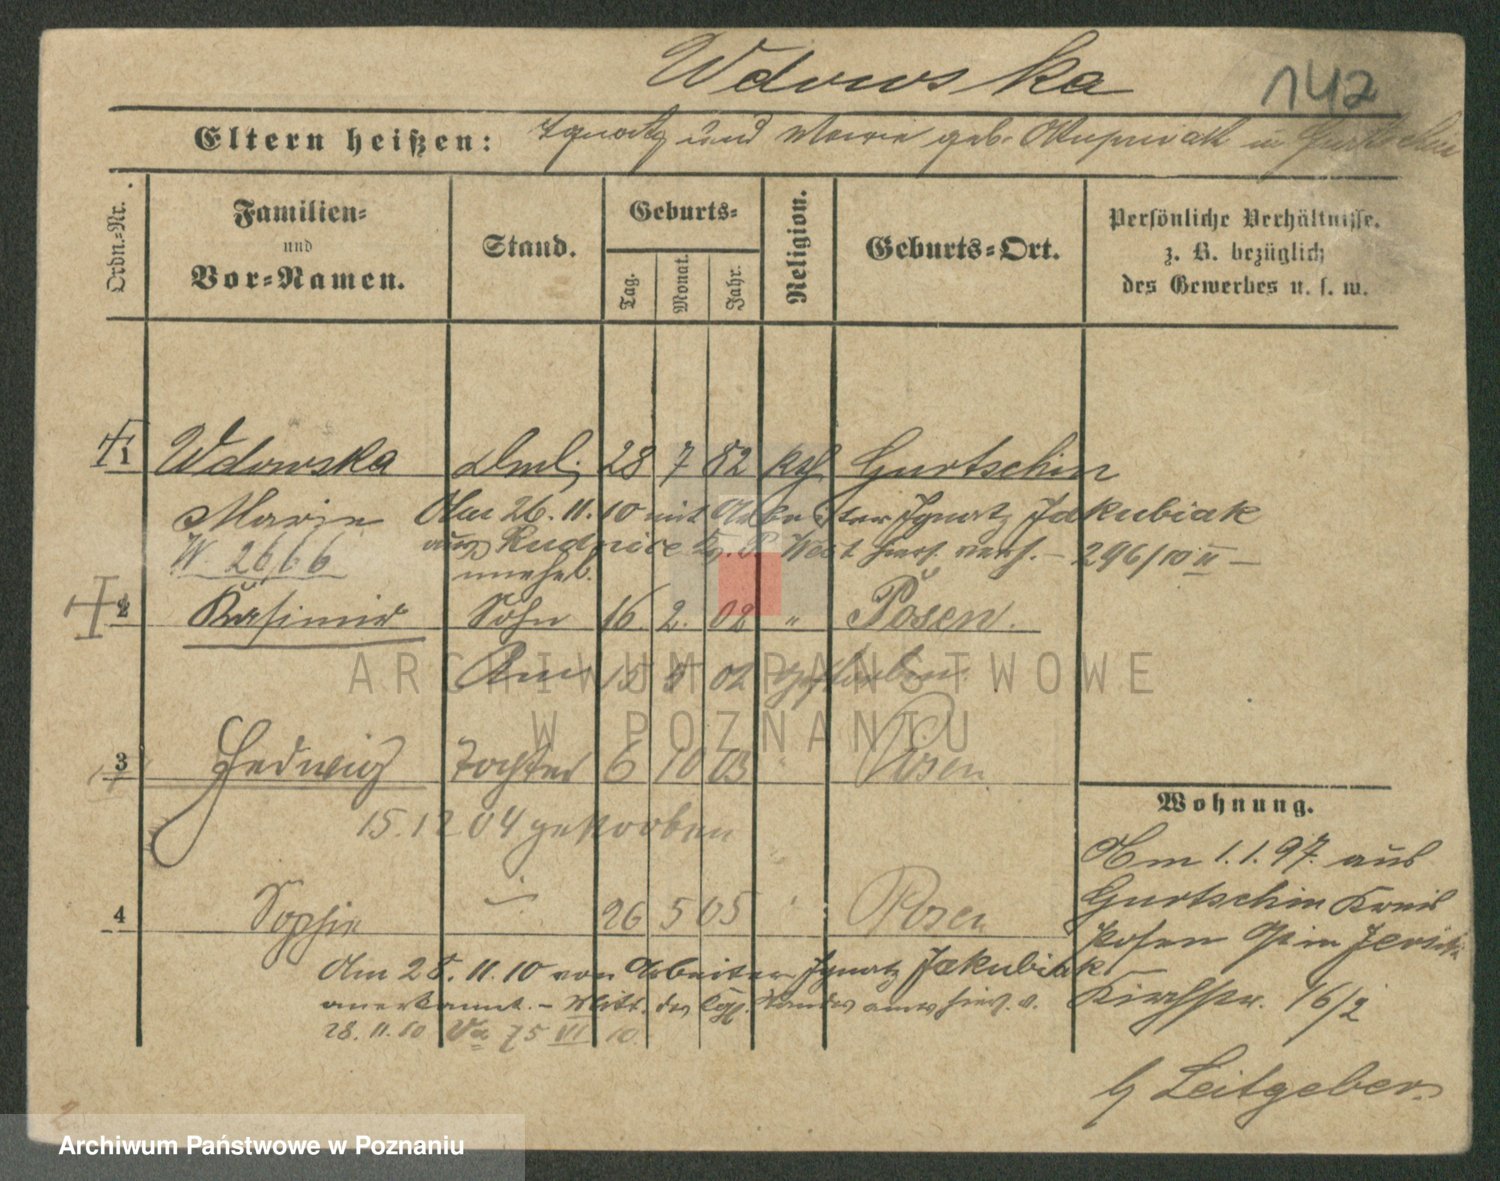 Wdowska
142
Eltern heißen: Ignatz und Marie geb. in Gurtschin
Ordn.-Nr.
Familien-
und
Vor-Namen.
Stand.
Geburts-
Tag.
Monat.
Jahr.
Religion.
Geburts-Ort.
Persönliche Verhältnisse.
z. B. bezüglich
des Gewerbes u. s. w.
1 Wdowska 28 7 82 kth Gurtschin
Marie Am 26. 11. 10 mit Arbeiter Ignatz Jakubiak
W. 2666 aus West hiers. verh. – 296/10 II –
unehel.
2 Kasimir Sohn 16. 2. 02 " Posen.
Am 15 8 02 gestorben.
3 Hedwig Tochter 6 10 03 " Posen
15. 12 04 gestorben
4 Sophie 26 5 05 " Posen
Am 28. 11. 10 von Arbeiter Ignatz Jakubiak
anerkannt. – Mitt. des Kgl. Standesamts hiers. v.
28. 11. 10 VI 10.
Wohnung.
Am 1. 1. 97. aus
Gurtschin Kreis
Posen
Kirchstr. 16/2
b/ Leitgeber.
ARCHIWUM PAŃSTWOWE
W POZNANIU
Archiwum Państwowe w Poznaniu